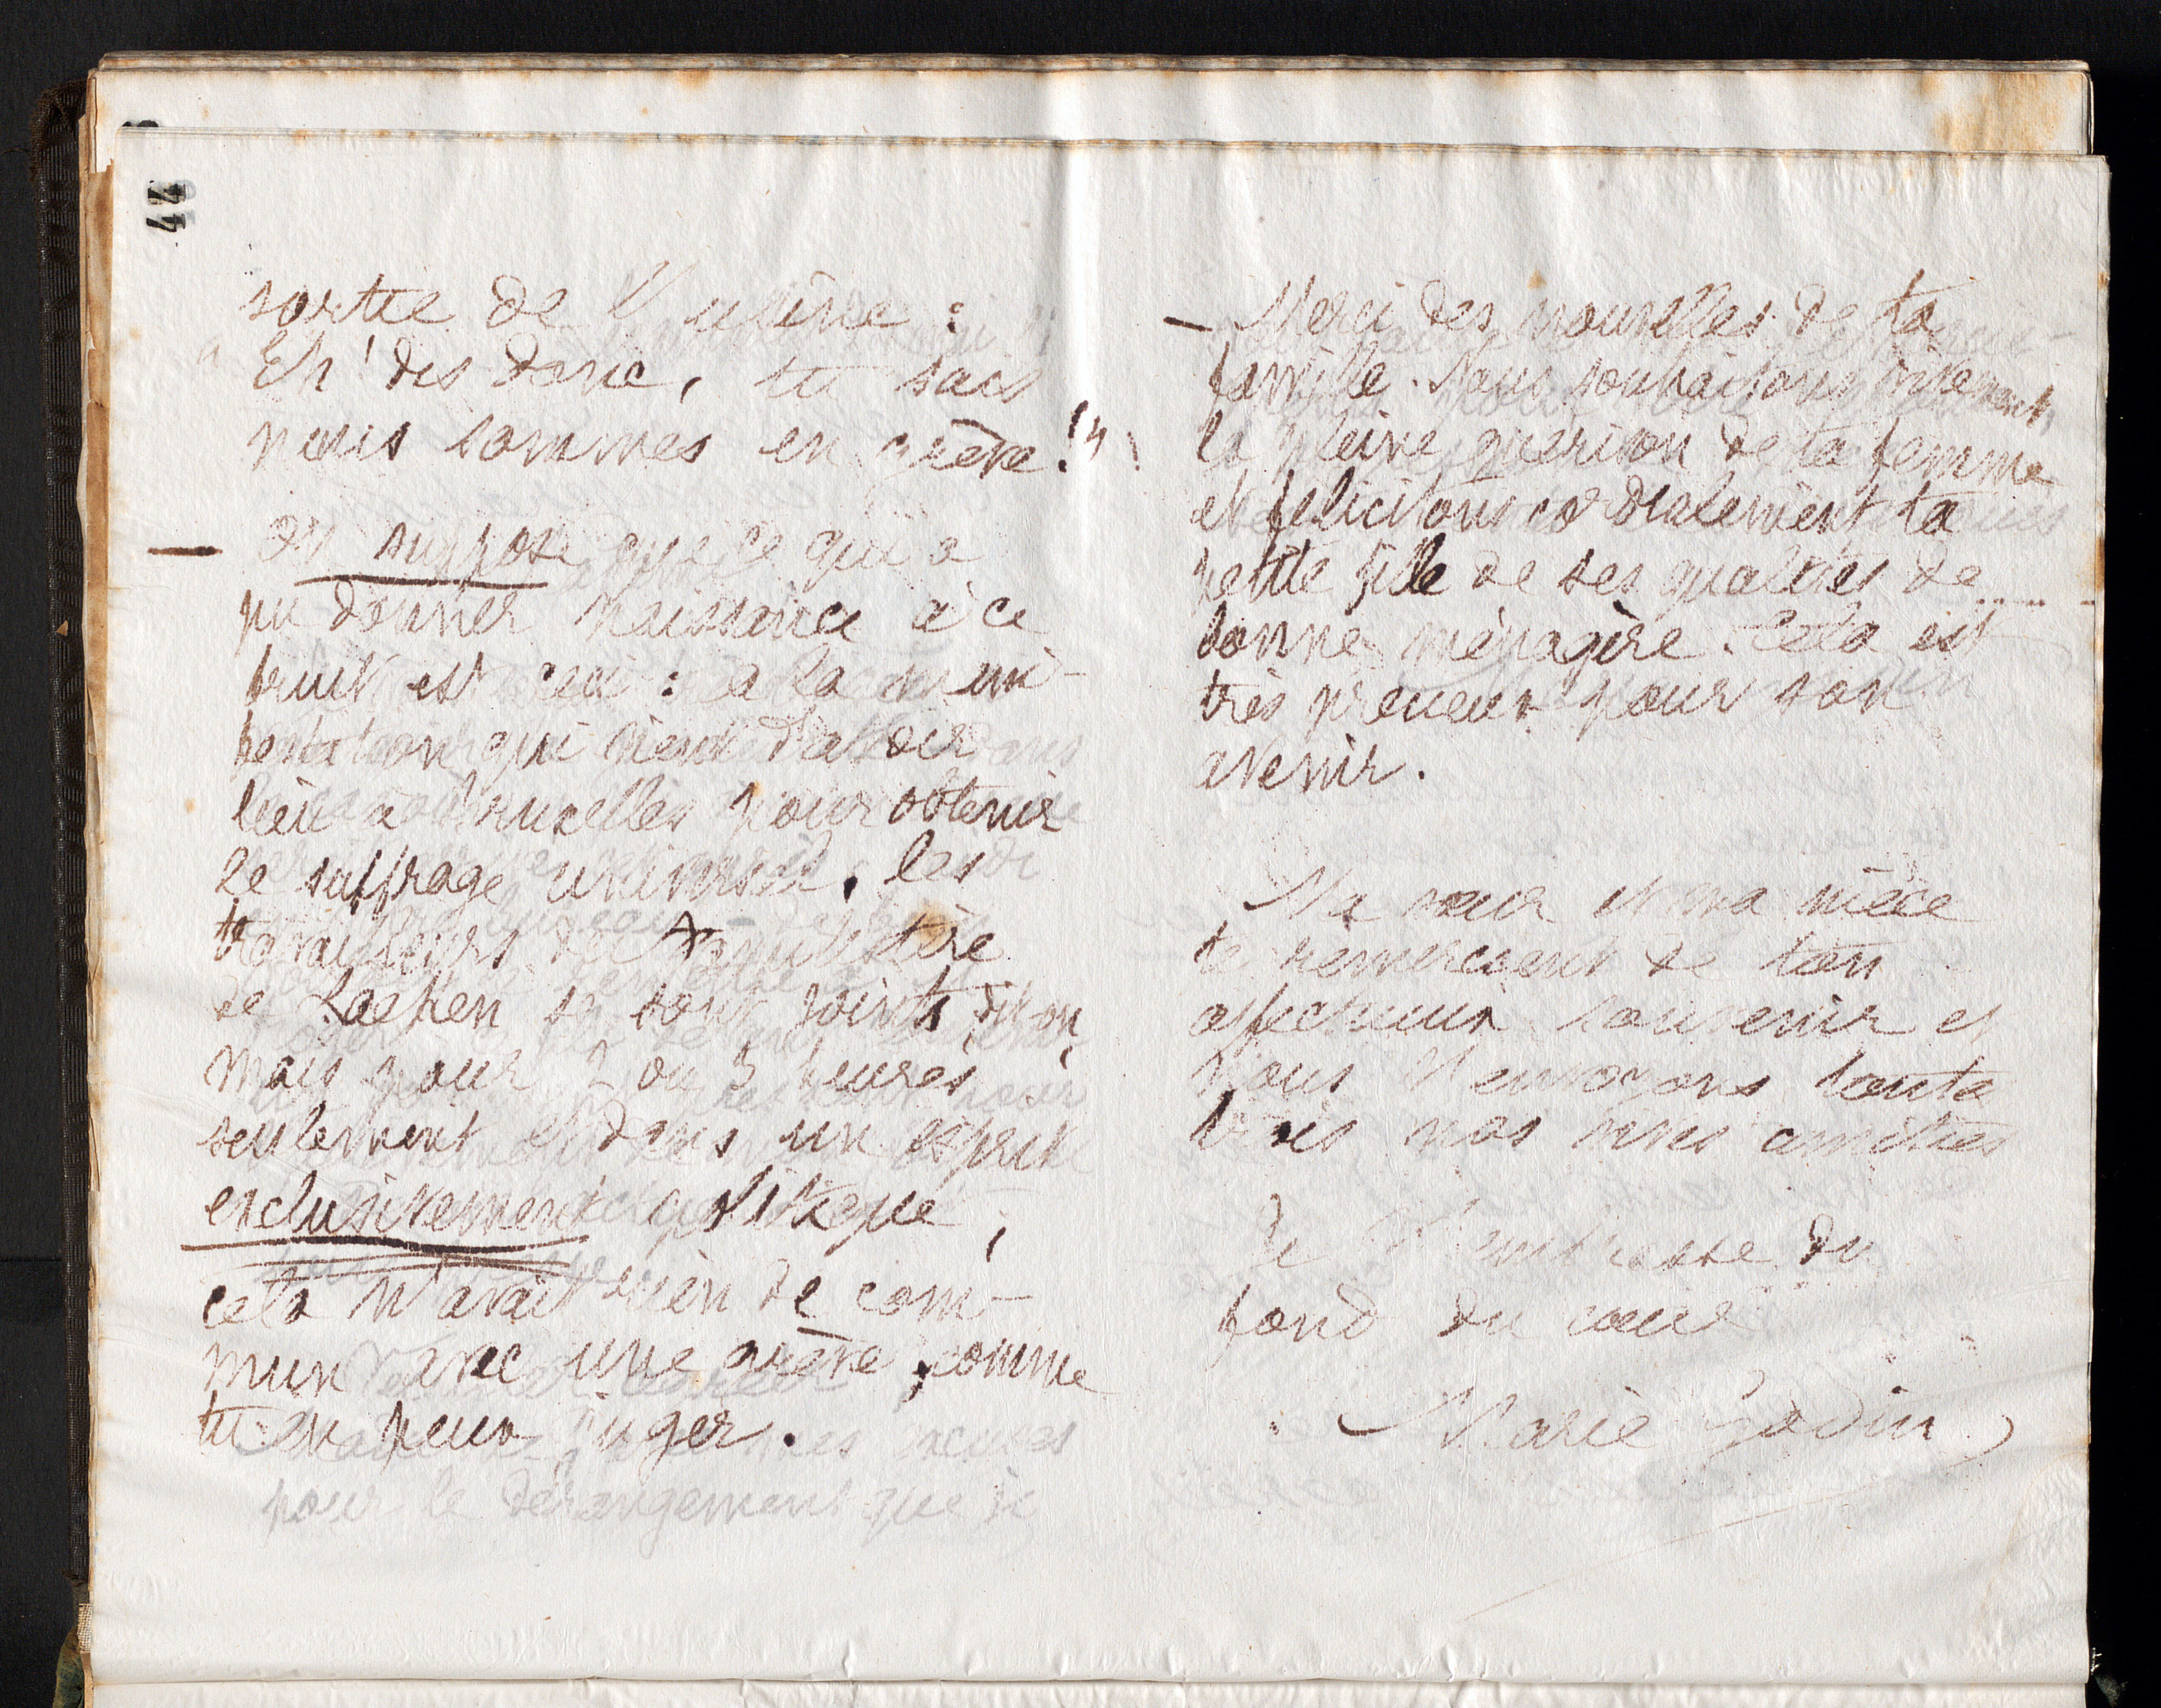 44
sortie de l'usine :
« Eh ! dis donc, tu sais
nous sommes en grève ! »
— On suppose que ce qui a
pu donner naissance à ce
bruit est ceci : à la mani-
festation qui vient d'avoir
lieu à Bruxelles pour obtenir
le suffrage universel, les
travailleurs du Familistère
de Laeken se sont joints, dit-on,
mais pour 2 ou 3 heures
seulement et dans un esprit
exclusivement politique,
cela n'avait rien de com-
mun avec une grève, comme
tu en peux juger.
pour le dérangement que je
— Merci des nouvelles de ta
famille. Nous souhaitons vivement
la pleine guérison de ta femme
et félicitons cordialement ta
petite fille de ses qualités de
bonne ménagère. Cela est
très précieux pour son
avenir.
Ma sœur et ma nièce
te remercient de ton
affectueux souvenir et
nous t'envoyons toutes
trois nos vives amitiés
Je t'embrasse du
fond du cœur
Marie Godin